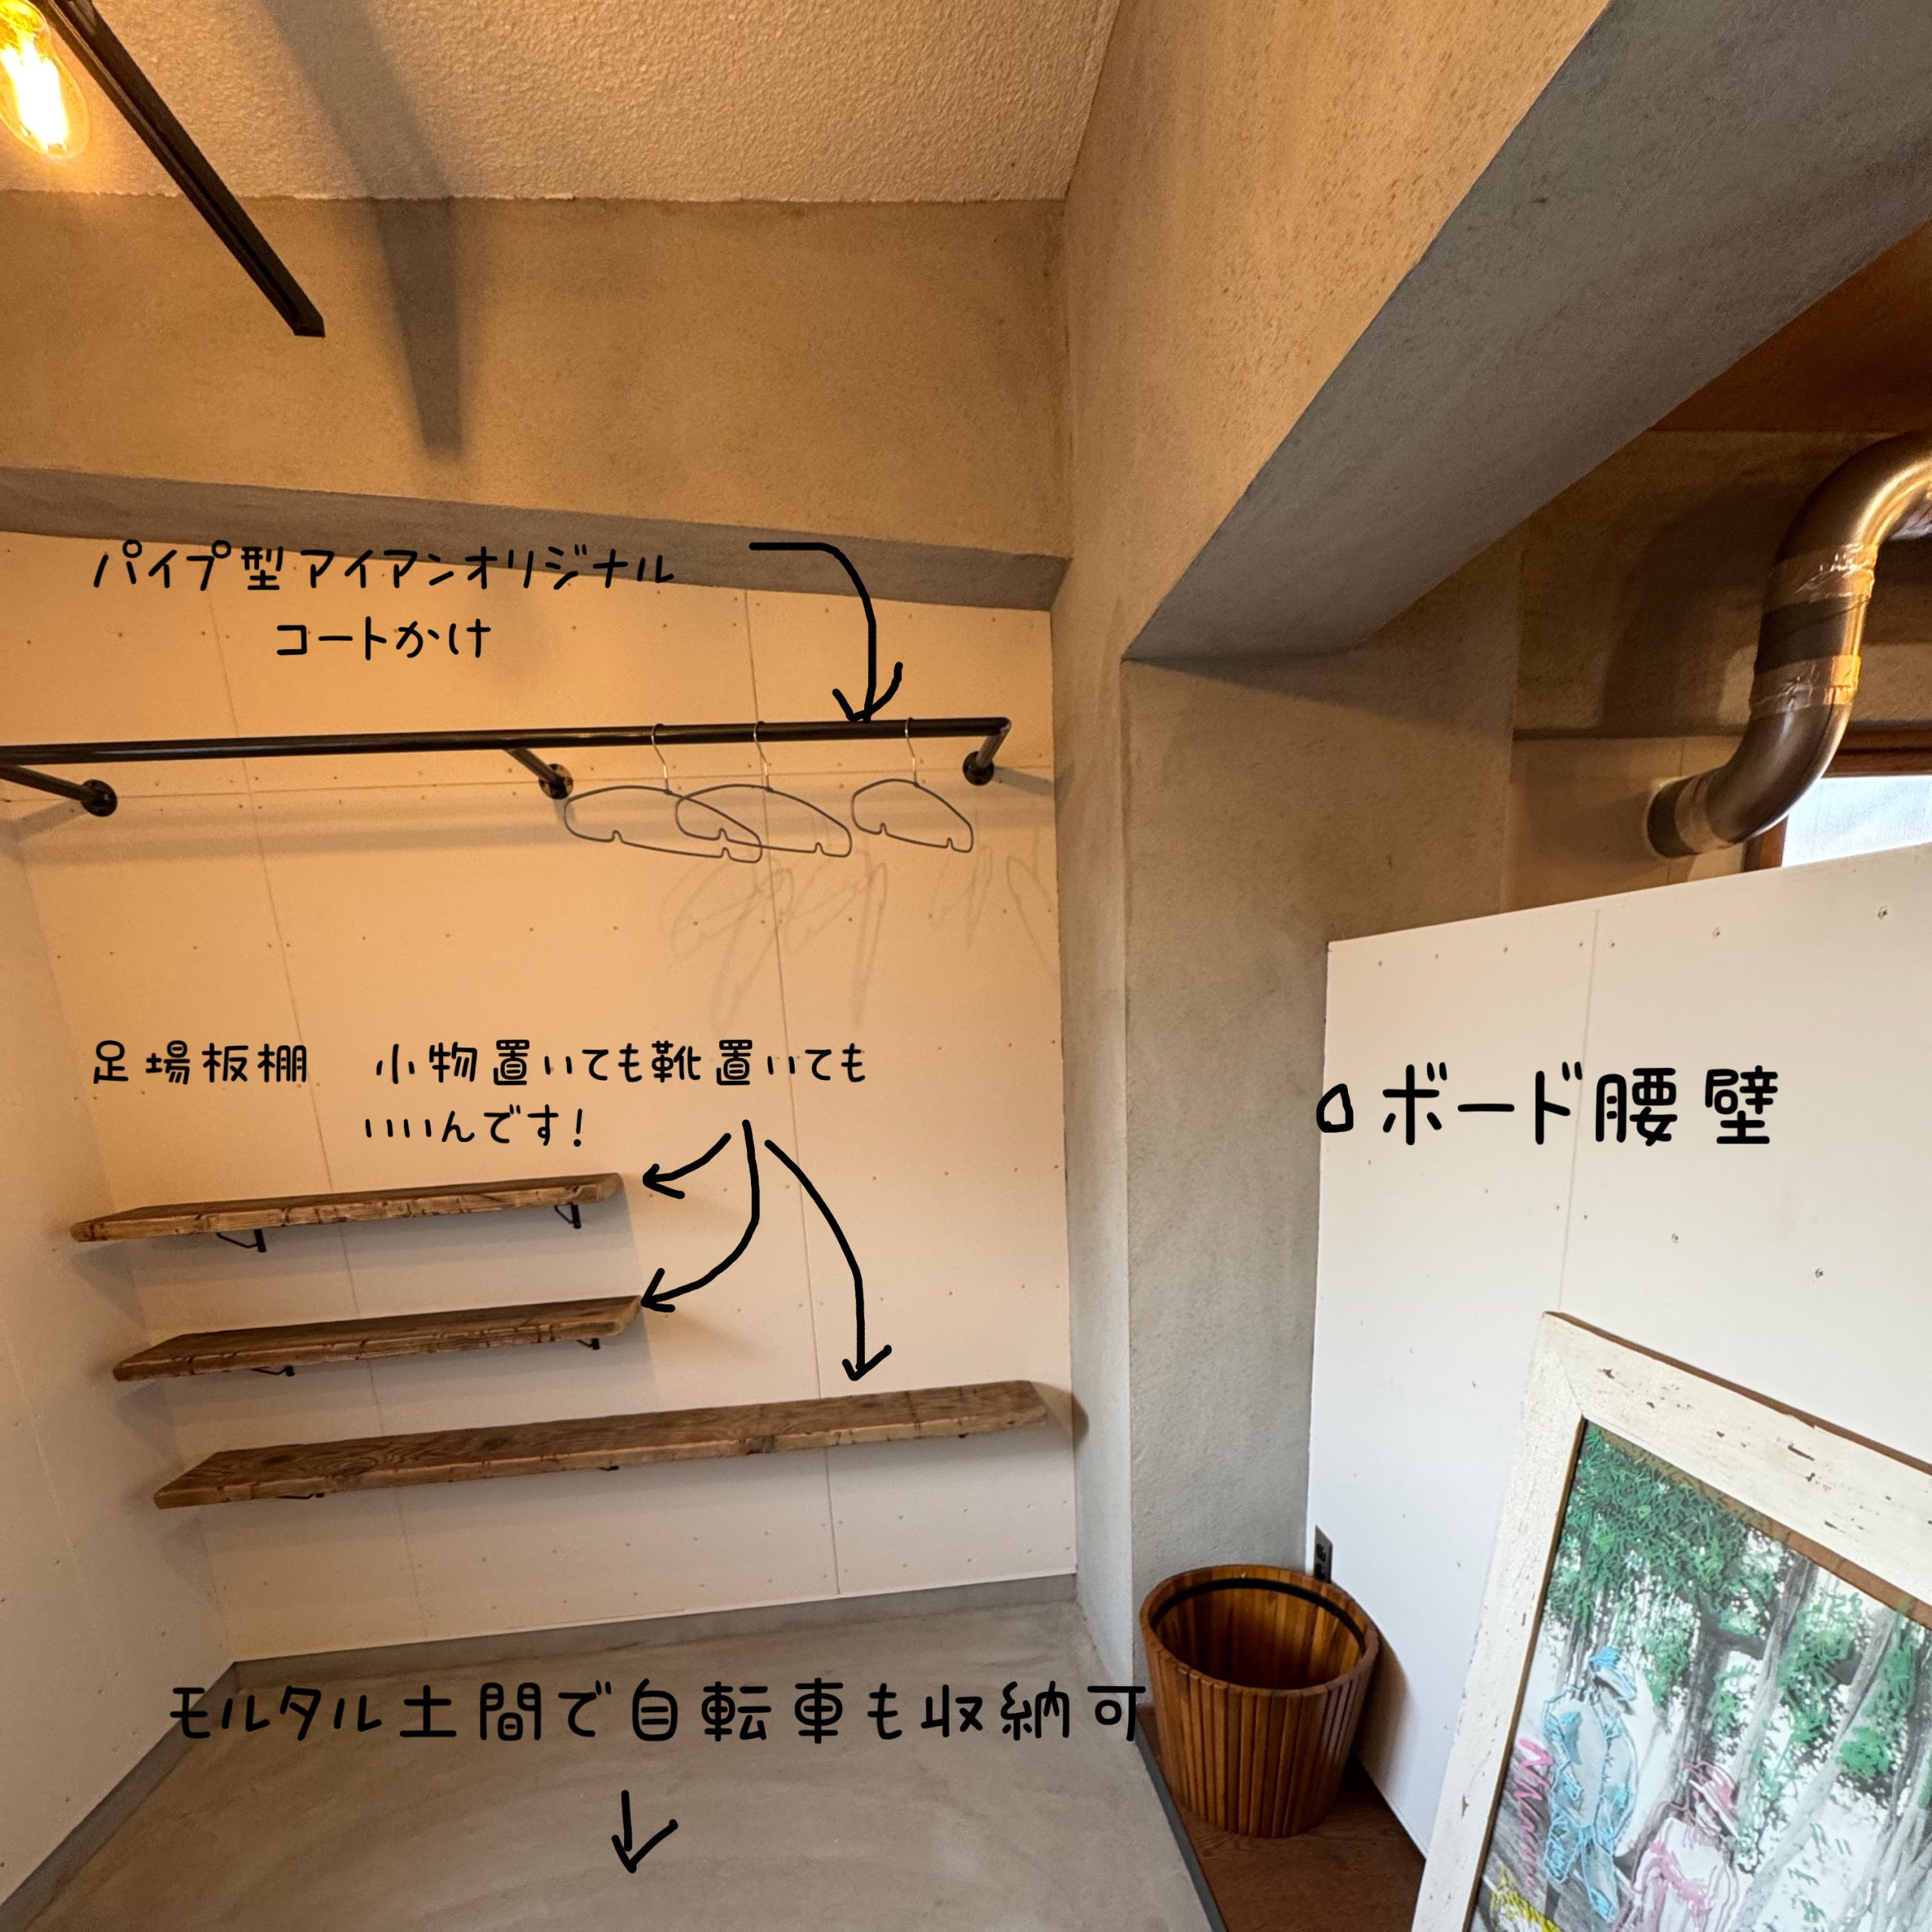 パイプ型アイアンオリジナル
コートかけ
足場板棚 小物置いても靴置いても
いいんです!
ロボード腰壁
モルタル土間で自転車も収納可